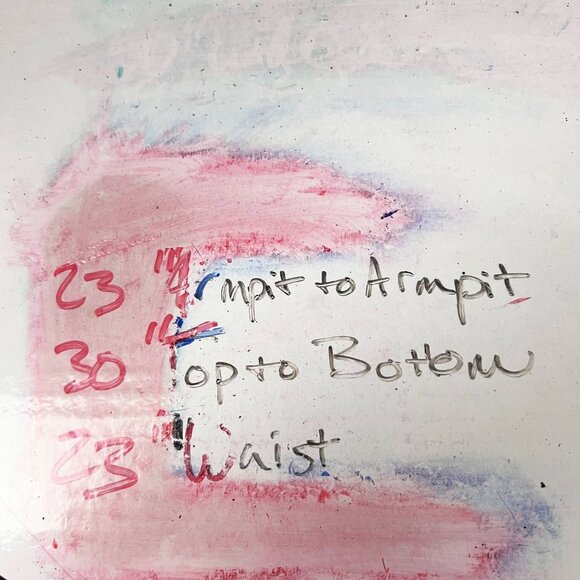 23" Armpit to Armpit
30" Top to Bottom
23" Waist